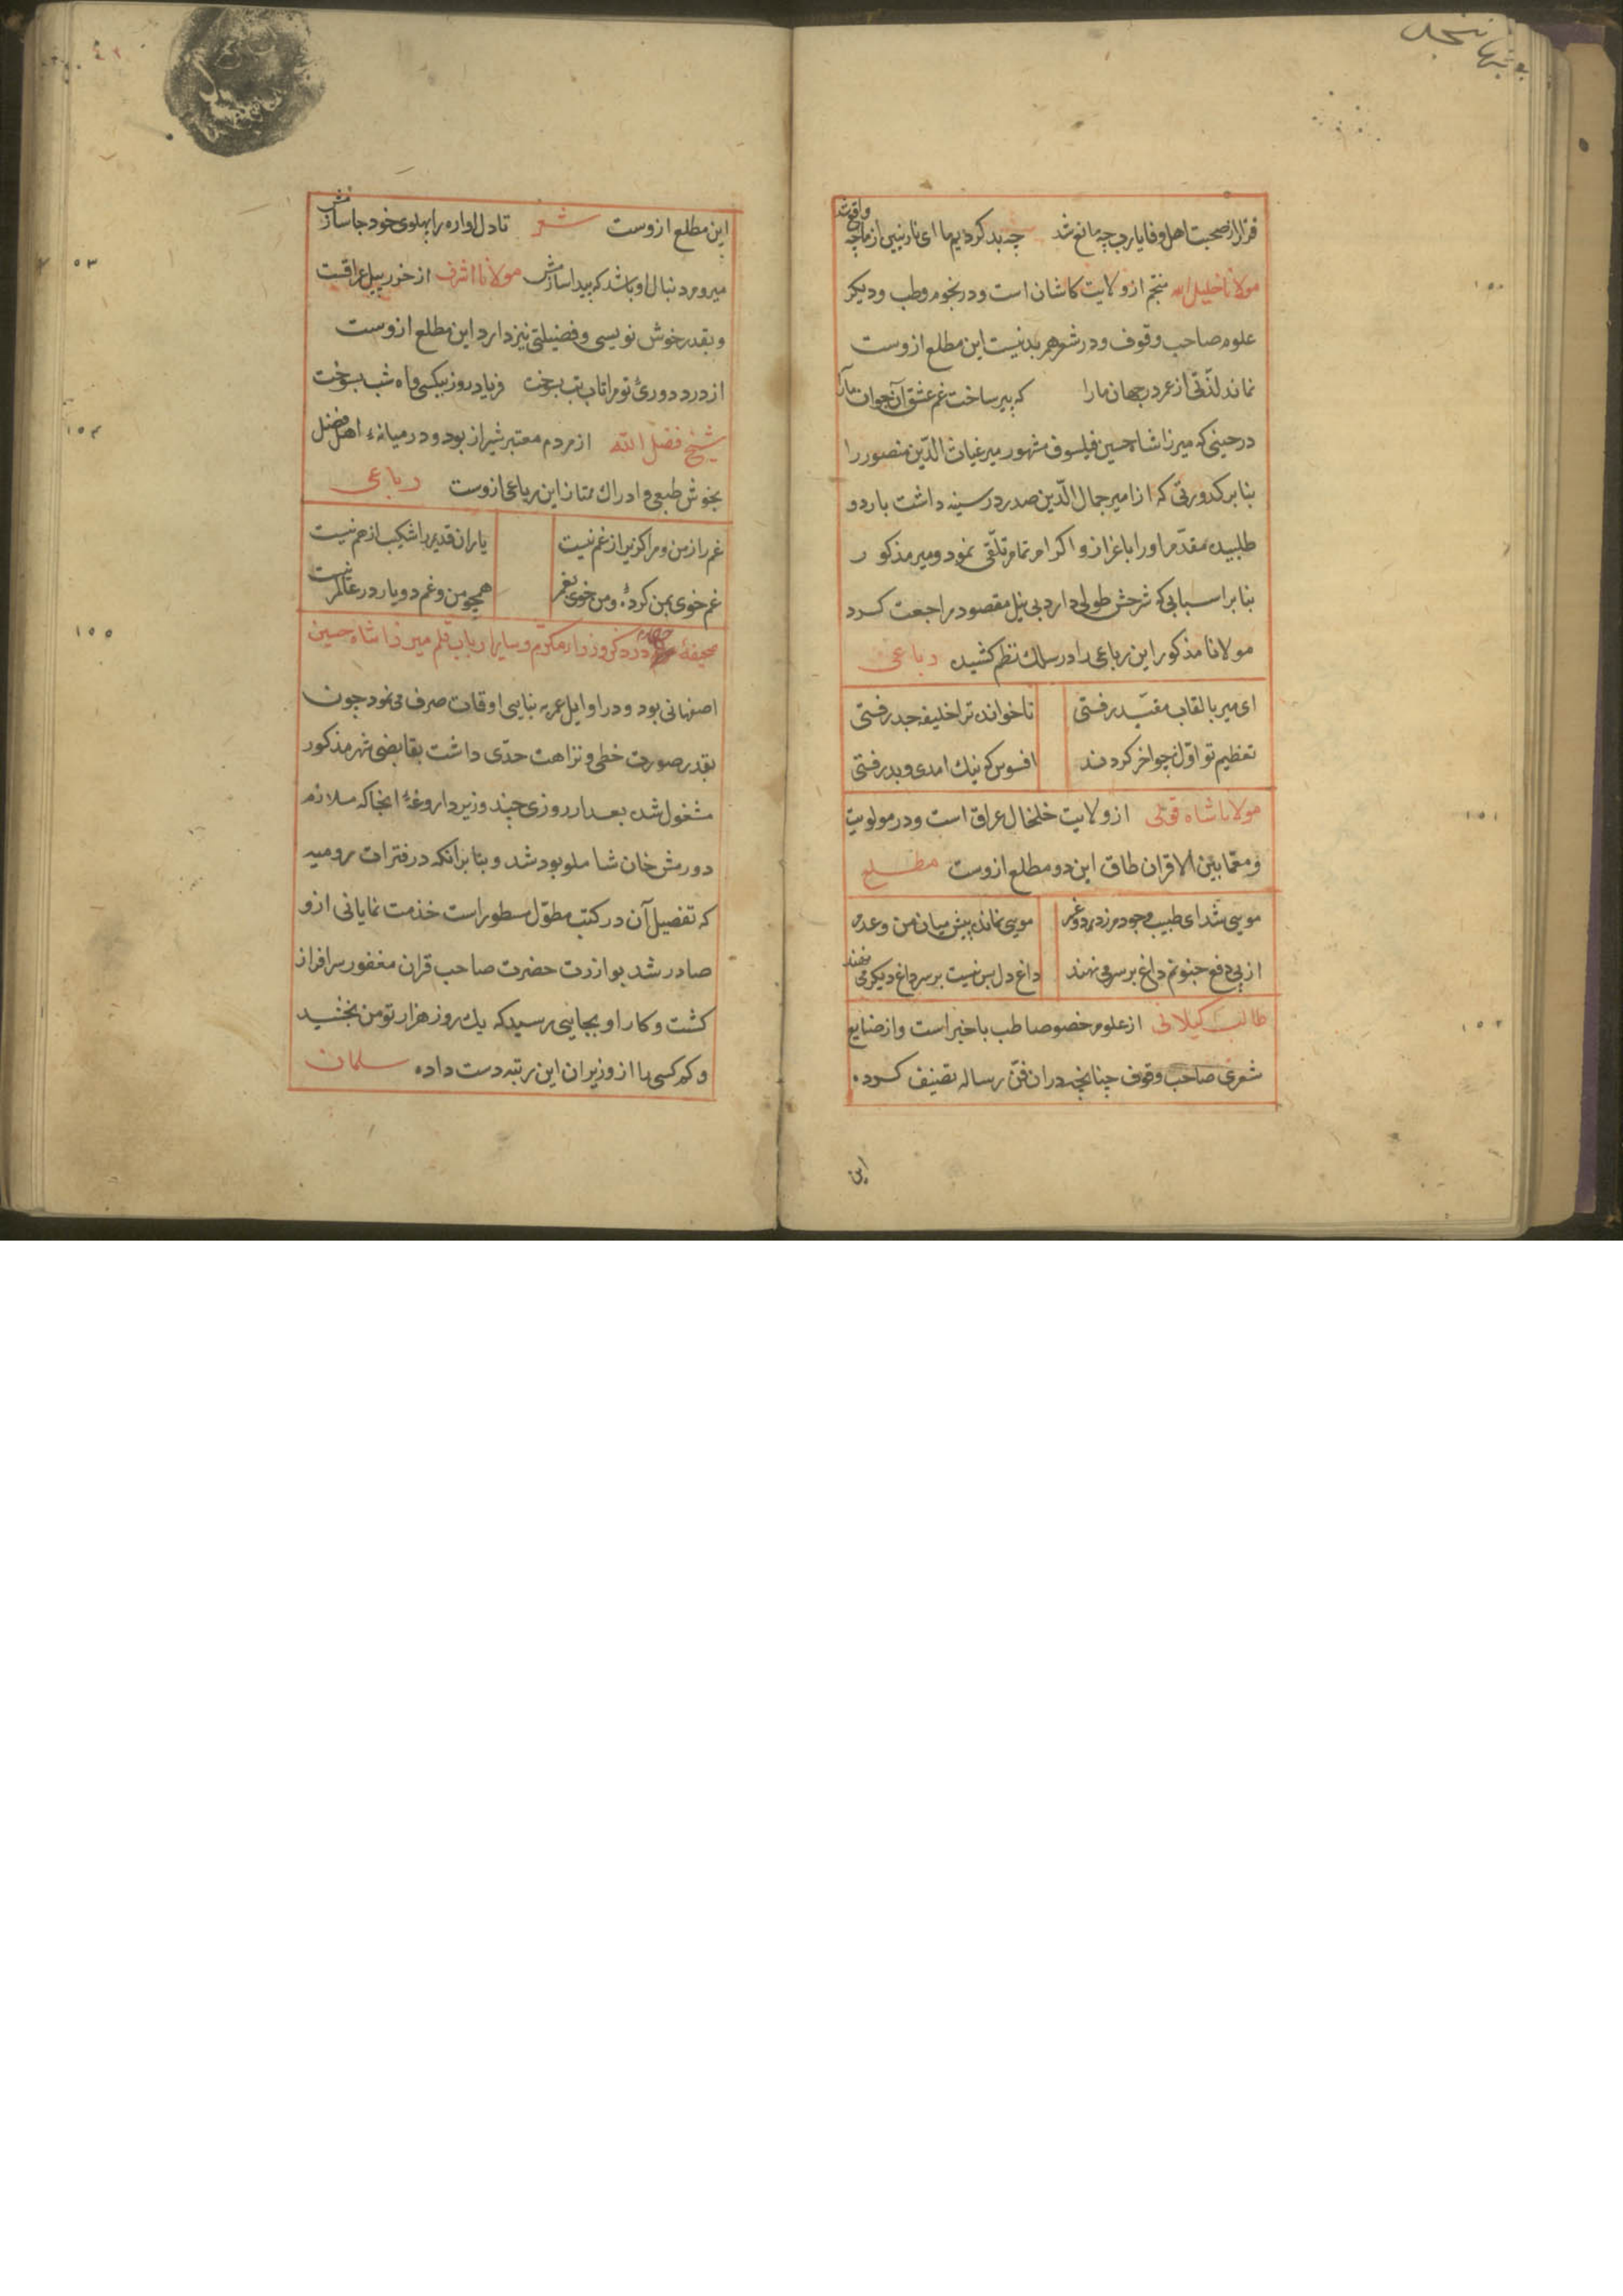 ترا از صحبت اهل وفا یا رب چه مانع شد چه بد کردیم ما ای نازنین از ما چه واقع شد
۱۵۰
مولانا خلیل الله منجم از ولایت کاشان است و در نجوم و طب و دیکر
علوم صاحب وقوف و در شعر هم بد نیست این مطلع ازوست
نماند لذّتی از عمر در جهان ما را که پیر ساخت غم عشق آن جوان ما را
در حینی که میرزا شاه حسین فیلسوف مشهور میر غیاث الدّین منصور را
بنا بر کدورتی که از امیر جمال الدّین صدر در سینه داشت باردو
طلبیده مقدّم او را باعزاز و اکرام تمام تلّقی نمود و میر مذکور
بنا بر اسبابی که شرحش طولی دارد بی نیل مقصود مراجعت کرد
مولانا مذکور این رباعی را در سلک نظم کشیده رباعی
ای میر بالقاب مقیّد رفتی ناخوانده ترا خلیفه جد رفتی
تعظیم تو اوّل چو اخر کردند افسوس که نیک امدی و بد رفتی
۱۵۱
مولانا شاه قولی از ولایت خلخال عراق است و در مولویت
و معمّا بین الاقران طاق این دو مطلع ازوست مطلع
مویی شد ای طبیب وجودم ز درد و غم مویی نمانده بیش میان من و عدم
از پی دفع جنونم داغ بر سر می نهند داغ دل بس نیست بر سر داغ دیکر می نهند
۱۵۲
طالب کیلانی از علوم خصوصا طب با خبر است و از صنایع
شعری صاحب وقوف چنانچه در ان فنّ رساله تصنیف کرده
این
این مطلع ازوست شعر تا دل اواره را پهلوی خود جا سازمش
میروم دنبال او باشد که پیدا سازمش مولانا اشرف از عراقست
۱۵۳
و بقدر خوش نویسی و فضیلتی نیز دارد این مطلع ازوست
از درد دوریٔ تو مرا تاب تب بسوخت فریاد روز بیکسی و اه شب بسوخت
۱۵۴
شیخ فضل الله از مردم معتبر شیراز بود و در میانهٔ اهل فضل
بخوش طبعی و ادراک ممتاز این رباعی ازوست رباعی
غم را ز من و مرا کزیر از غم نیست یاران قدیم را شکیب از هم نیست
غم خوی بمن کرده و من خوی بغم همچو من و غم دو یار در عالم نیست
۱۵۵
صحیفهٔ در ذکر وزراء مکرّم و سایر ارباب قلم میرزا شاه حسین
اصفهانی بود و در اوایل عمر به بنایی اوقات صرف می نمود چون
بقدر صورت خطی و نزاهت حدّی داشت بقابضی شهر مذکور
مشغول شد بعد از روزی چند وزیر داروغهٔ انجا که ملازم
دورمش خان شاملو بود شد و بنا بر آنکه در فترات رومیه
که تفصیل آن در کتب مطوّل مسطور است خدمت نمایانی ازو
صادر شد بوازرت حضرت صاحب قران مغفور سرافراز
کشت و کار او بجایی رسید که یک روز هزار تومن بخشید
و کم کسی را از وزیران این رتبه دست داده سلمان